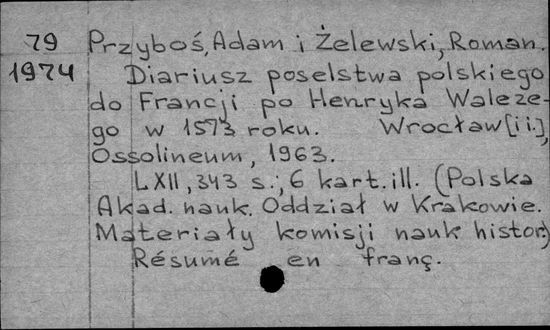 79 Przyboś, Adam i Żelewski, Roman.
1974 Diariusz poselstwa polskiego
do Francji po Henryka Waleze-
go w 1573 roku. Wrocław [i i.],
Ossolineum, 1963.
LXII, 343 s.; 6 kart. ill. (Polska
Akad. nauk. Oddział w Krakowie.
Materiały komisji nauk histor.)
Résumé en franç.